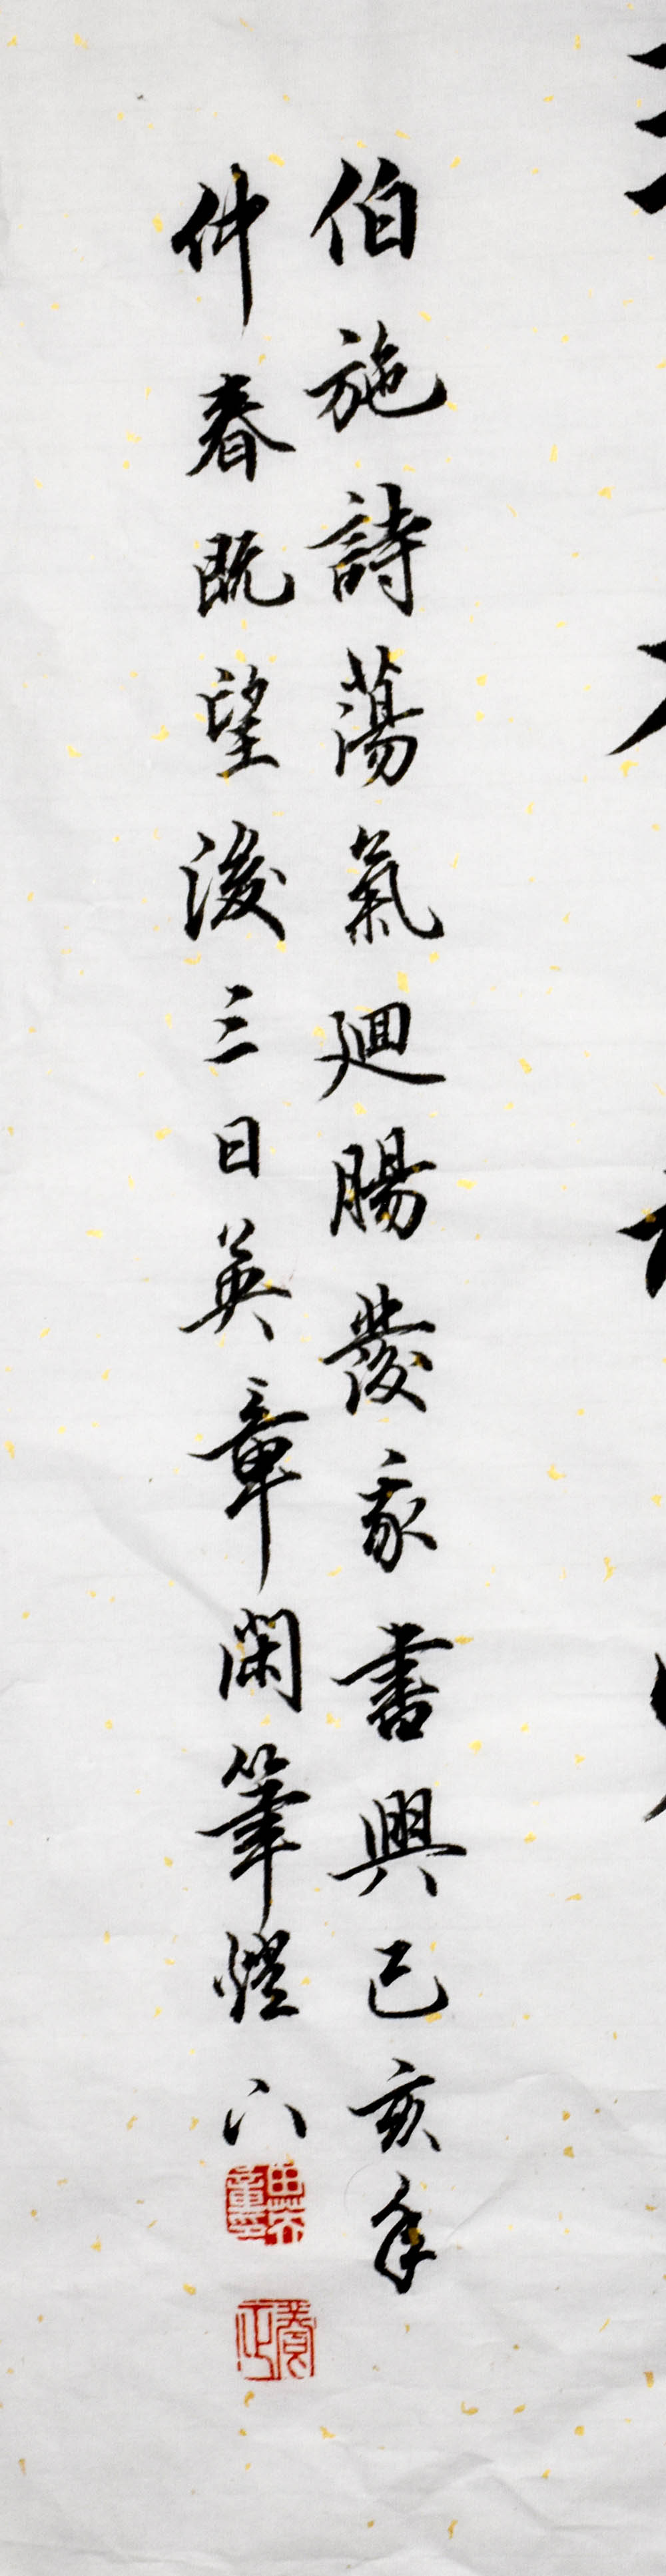 伯施詩蕩氣迴腸發我書興己亥年
仲春既望後三日英章閑筆燈下